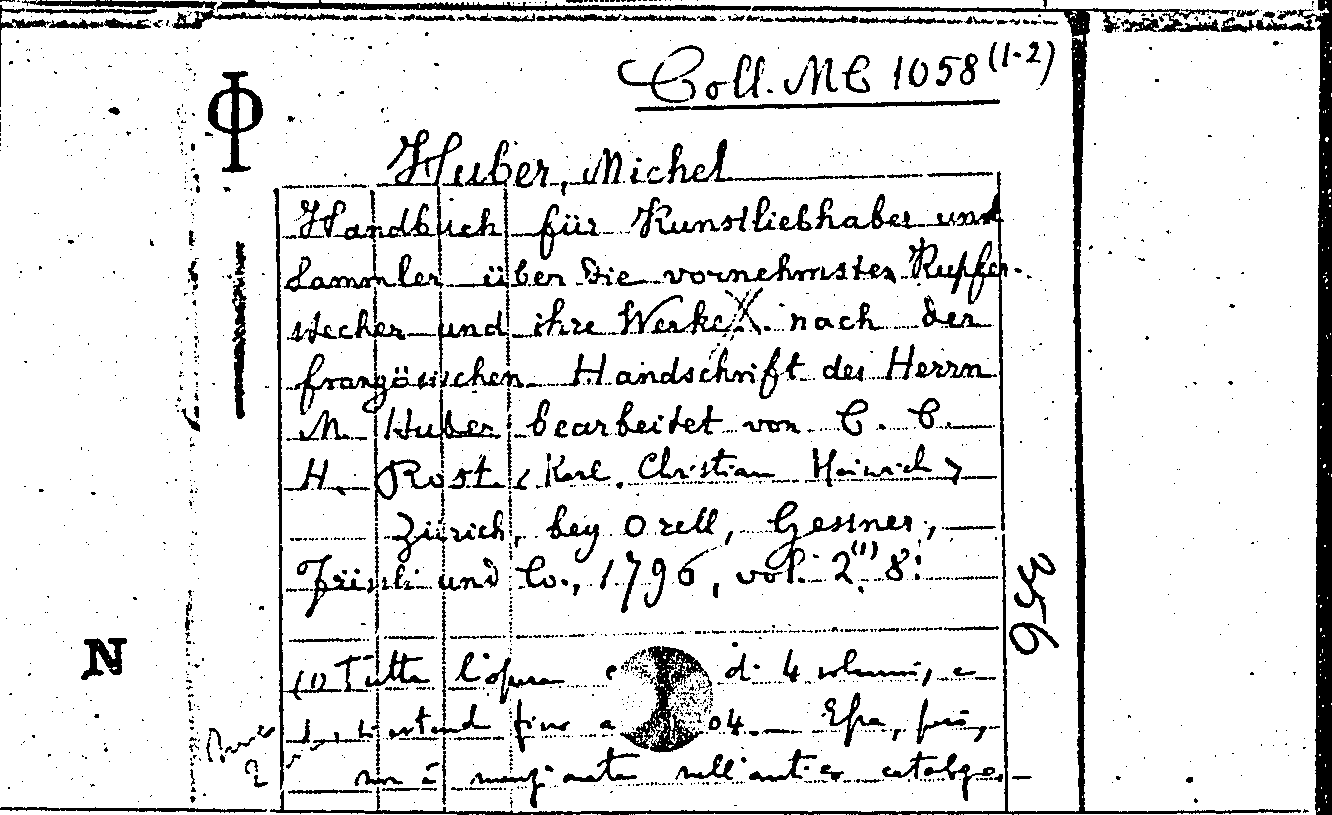 Coll. MC 1058 (1-2)
Φ
Huber, Michel
Handbuch für Kunstliebhaber und
Sammler über die vornehmsten Kupfer-
stecher und ihre Werke. nach der
französischen Handschrift des Herrn
M. Huber bearbeitet von C. C.
H. Rost < Karl Christian Heinrich >
Zürich, bey Orell, Gessner,
Füssli und Co., 1796, vol. 2.(1) 8º
356
N
(1) Tutta l'opera di 4 volumi, e
fino a 04. Essa, però,
non è nell'antico catalogo.
2